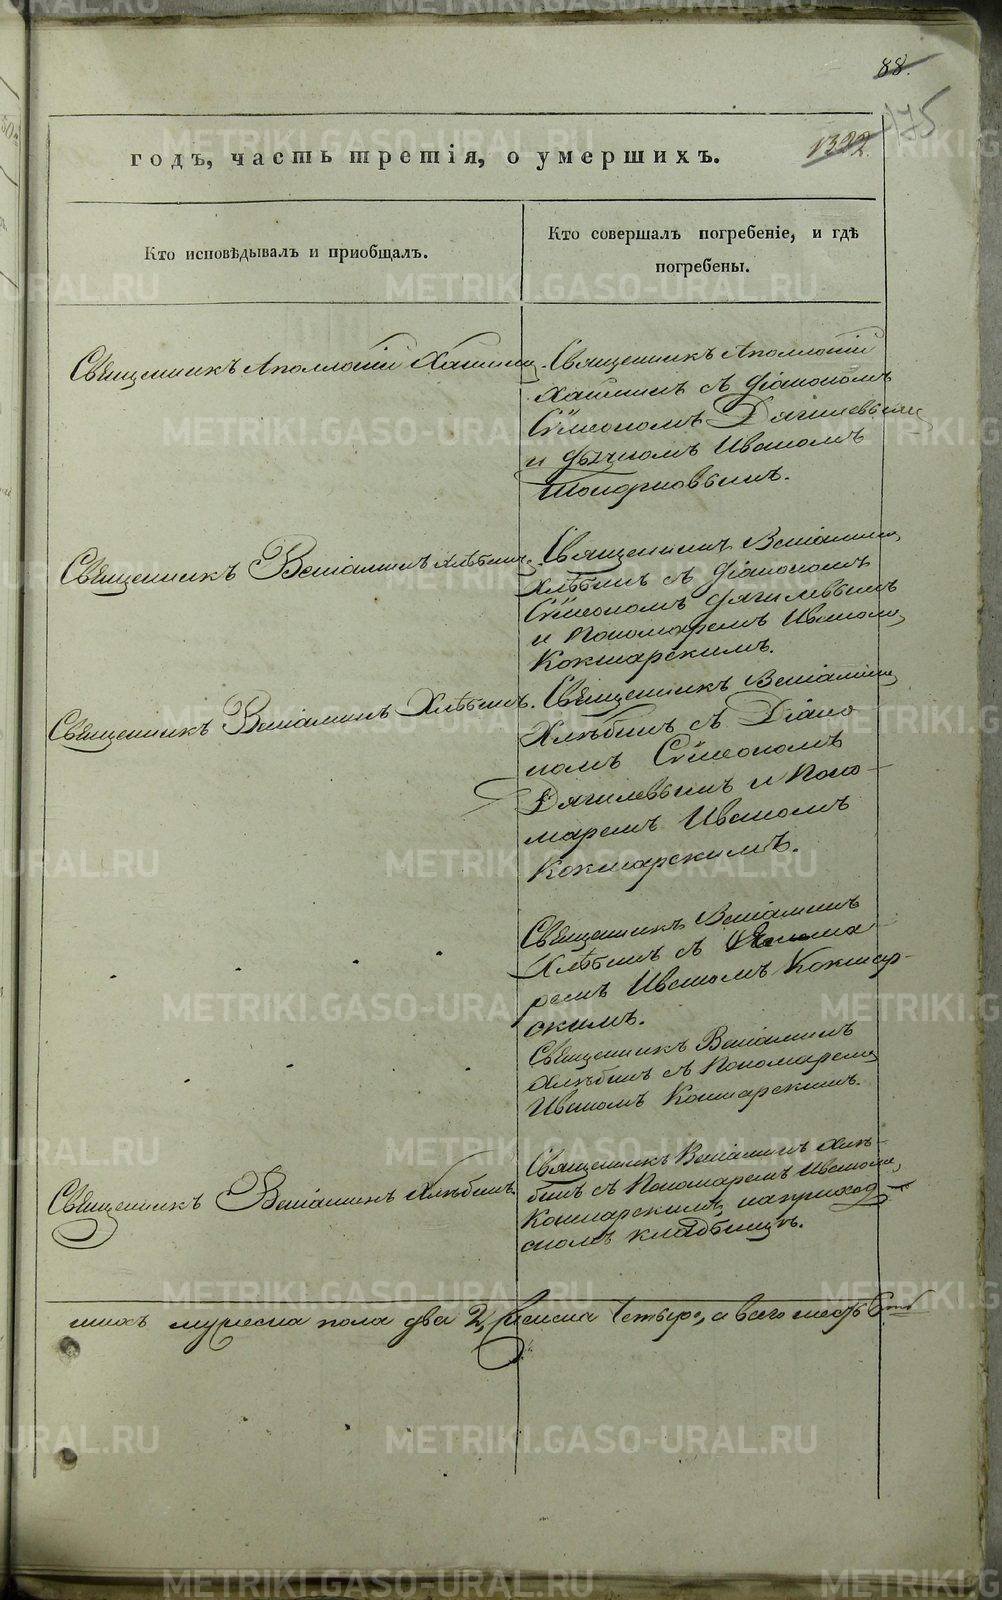 88.
175
1322.
годъ, часть третія, о умершихъ.
Кто исповѣдывалъ и пріобщалъ.
Кто совершалъ погребеніе, и гдѣ
погребены.
Священникъ Аполлоній
Священникъ Аполлоній
съ Діакономъ
Сѵмеономъ Дягилевымъ
и дьячкомъ Иваномъ
Священникъ Веніаминъ Хлѣбинъ.
Священникъ Веніаминъ
Хлѣбинъ съ Діакономъ
Сѵмеономъ Дягилевымъ
и Пономаремъ Иваномъ
Кокшарскимъ.
Священникъ Веніаминъ Хлѣбинъ.
Священникъ Веніаминъ
Хлѣбинъ съ Діако
номъ Сѵмеономъ
Дягилевымъ и Поно-
маремъ Иваномъ
Кокшарскимъ.
Священникъ Веніаминъ
Хлѣбинъ съ
ремъ Иваномъ Кокшар-
скимъ.
Священникъ Веніаминъ
Хлѣбинъ съ Пономаремъ
Иваномъ Кокшарскимъ.
Священникъ Веніаминъ Хлѣбинъ.
Священникъ Веніаминъ Хлѣ-
бинъ съ Пономаремъ Иваномъ
Кокшарскимъ, на приход-
скомъ кладбищѣ.
шихъ мужеска пола два 2, женска четыре, а всего шесть 6ть
METRIKI.GASO-URAL.RU